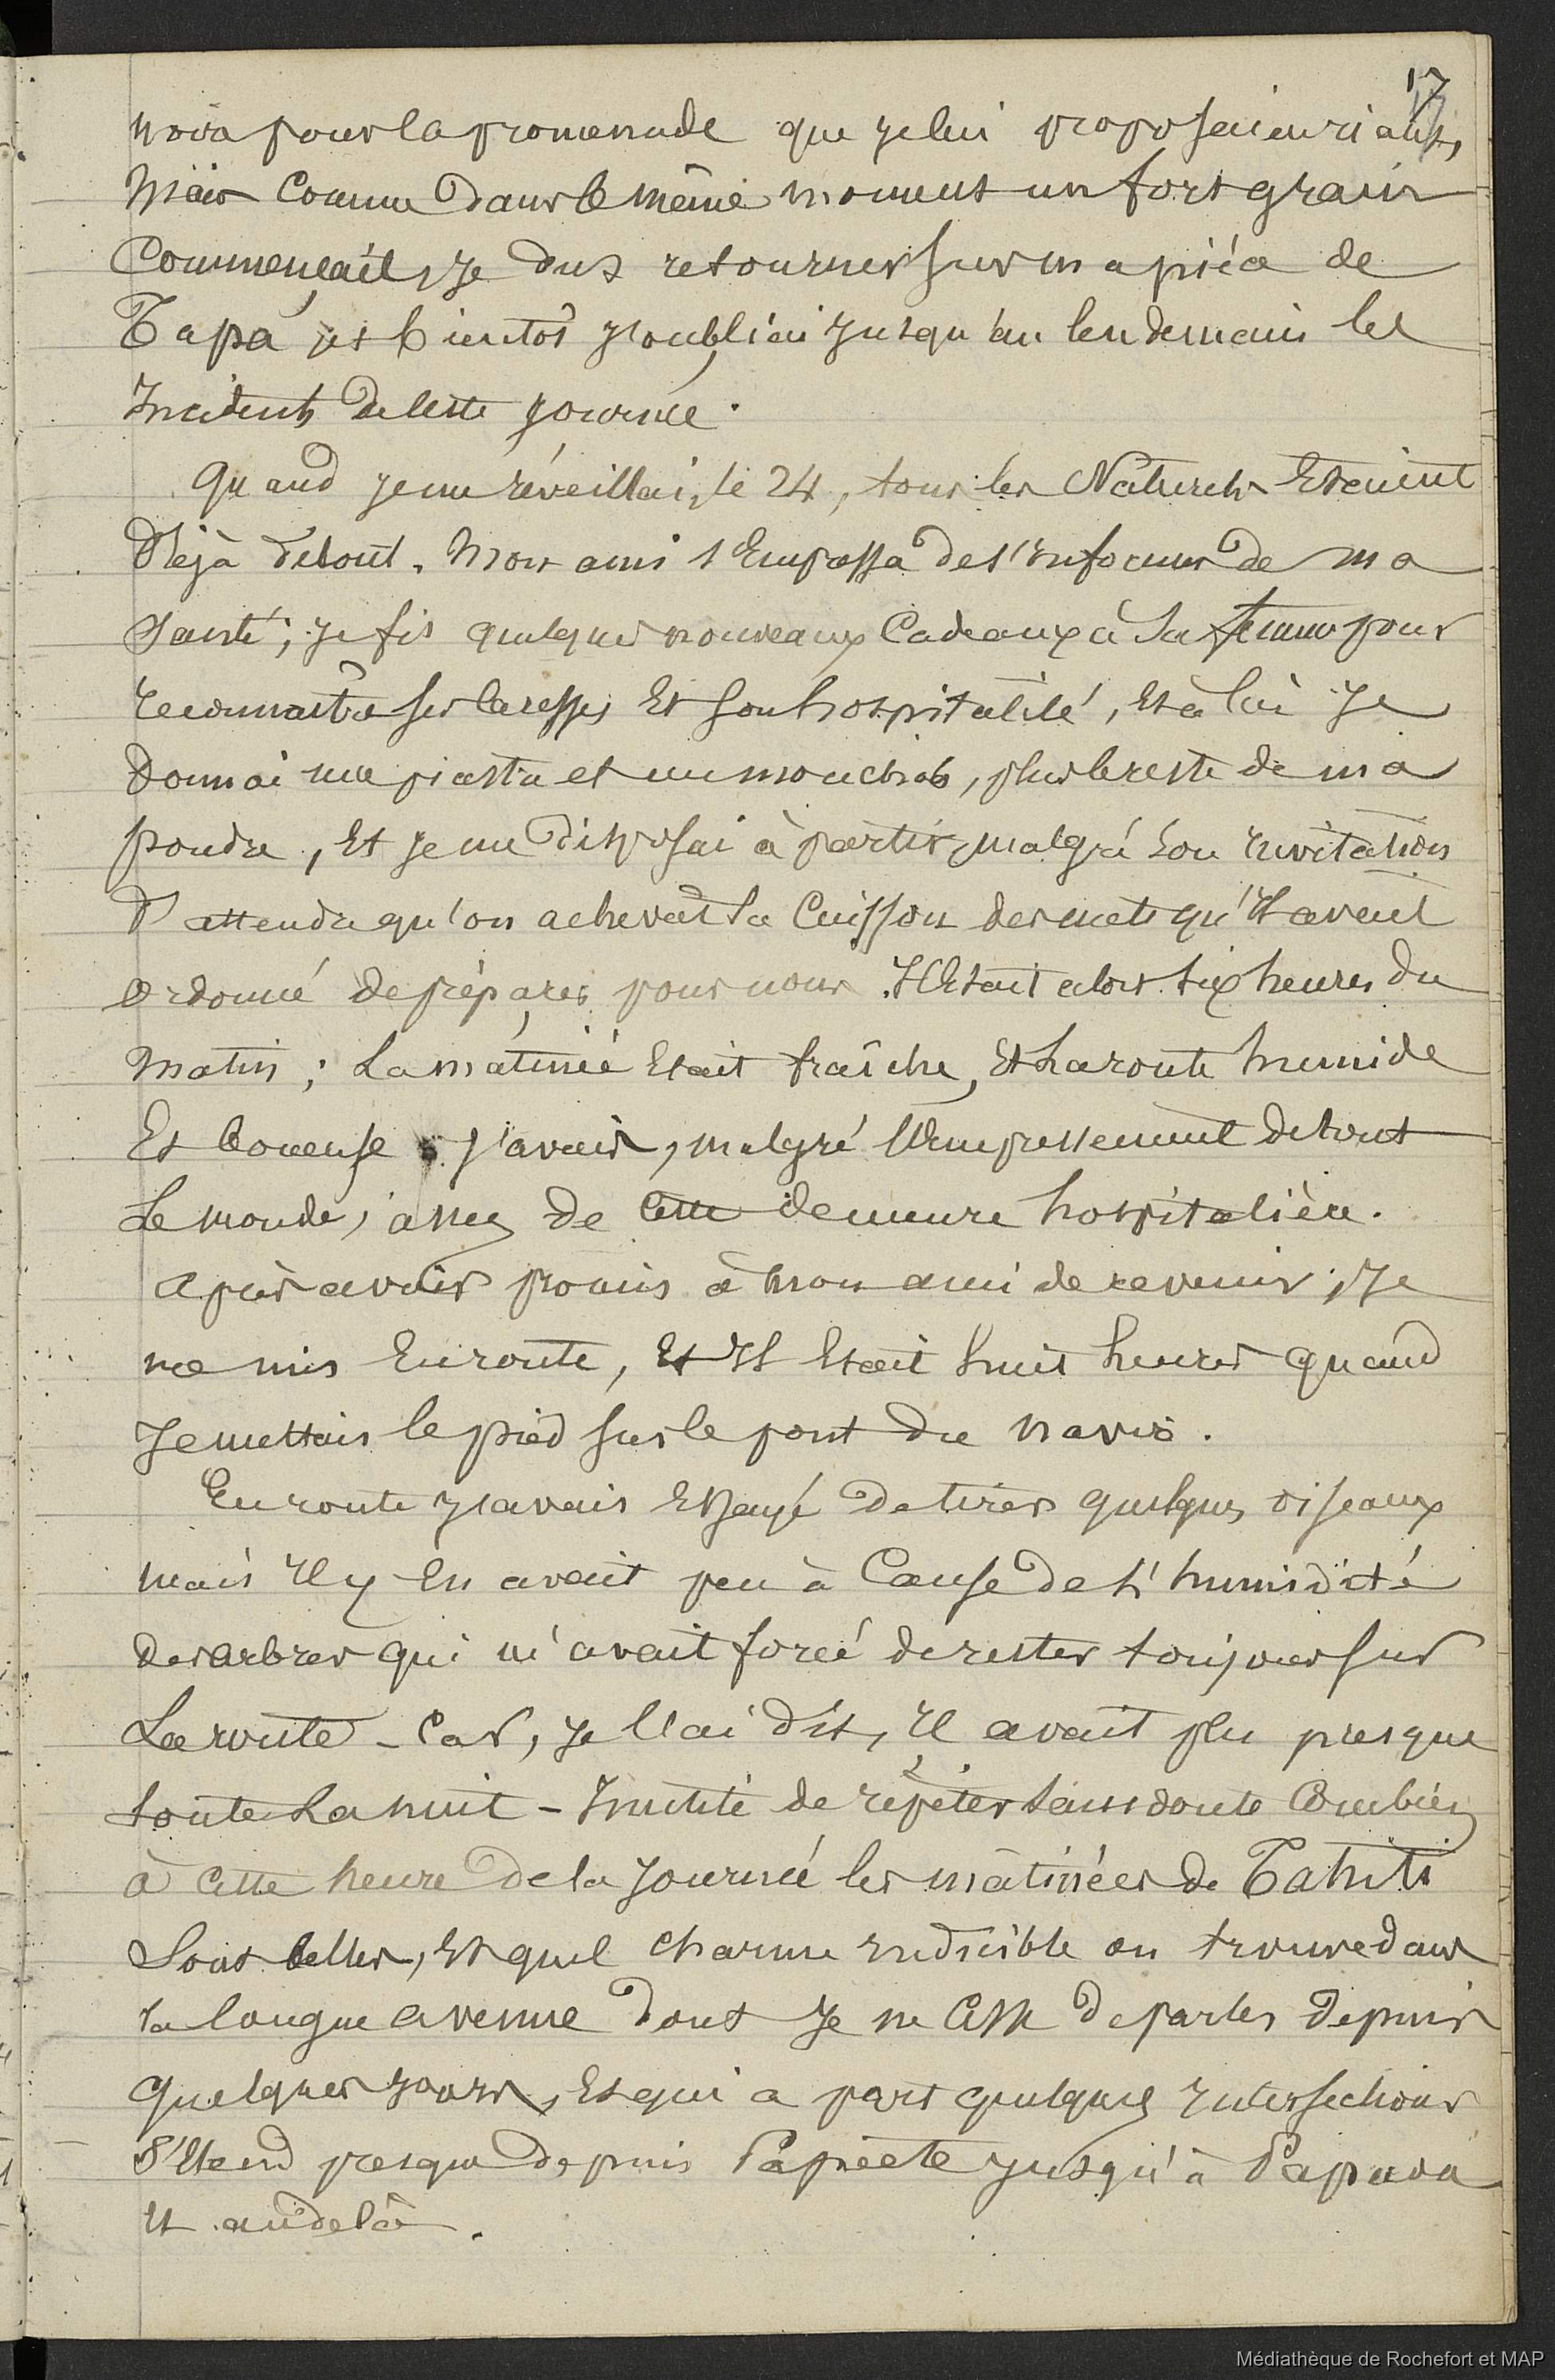 17
pour la promenade que je lui proposai en riant,
Mais Comme Dans le même moment un fort grain
Commençait, Je dus retourner sur ma pièce de
Tapa, et bientôt j'oubliai jusqu'au lendemain les
Incidents De cette journée.
Quand je me réveillai, le 24, tous les Naturels Etaient
Déjà debout. Mon ami s'Empressa de s'informer de ma
Santé; je fis quelques nouveaux Cadeaux à sa femme pour
reconnaître ses caresses Et son hospitalité, Et à lui Je
Donnai une piastre et un mouchoir, plus le reste de ma
poudre, Et je me disposai à partir, malgré son invitation
D'attendre qu'on achevât la Cuisson des mets qu'Il avait
Ordonné de préparer pour nous. Il Etait alors six heures du
Matin; La matinée Etait fraîche, Et La route humide
Et boueuse. J'avais, malgré l'Empressement de tout
Le monde, assez de Cette demeure hospitalière.
Après avoir promis à mon ami de revenir, Je
me mis En route, Et Il Etait huit heures quand
Je mettais le pied sur le pont du navire.
En route j'avais Essayé De tirer quelques oiseaux
mais Il y En avait peu à Cause De L'humidité
des arbres qui m'avait forcé de rester toujours sur
La route – Car, je l'ai dit, Il avait plu presque
toute La nuit – Inutile de répéter sans doute Combien
à Cette heure De la journée les matinées de Tahiti
Sont belles, Et quel charme indicible on trouve dans
la longue avenue Dont Je ne Cesse De parler Depuis
Quelques jours, Et qui a part quelques Intersections
S'Etend presque Depuis Papéete jusqu'à
Et au delà.
Médiathèque de Rochefort et MAP